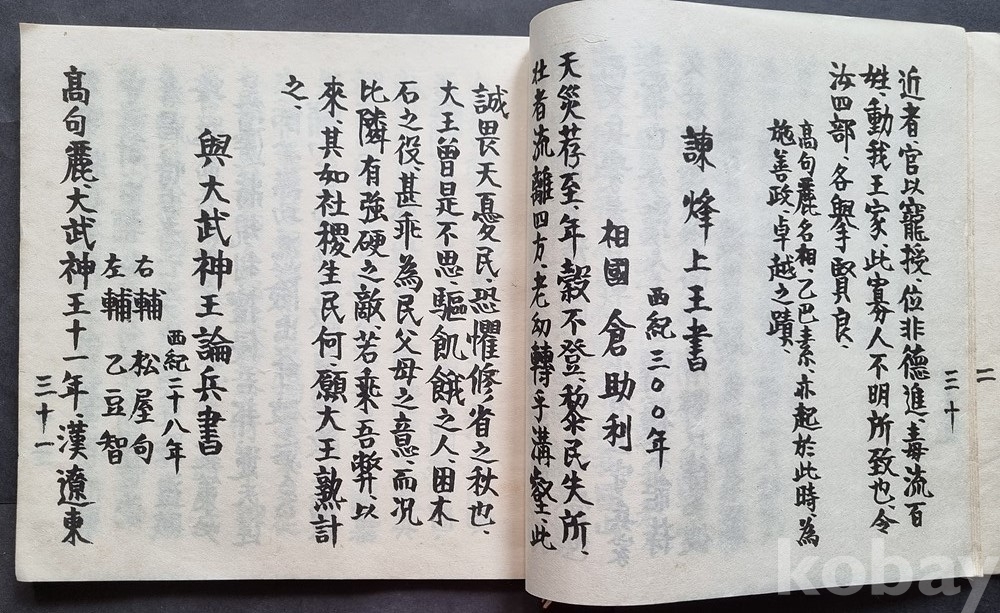 二
三十
近者、官以寵授、位非德進、毒流百
姓、動我王家、此寡人不明所致也、令
汝四部、各擧賢良、
高句麗名相、乙巴素、亦起於此時、為
施善政卓越之蹟、
諫烽上王書
西紀三〇〇年
相國 倉助利
天災荐至、年穀不登、黎民失所、
壯者流離四方、老幼轉乎溝壑、此
誠畏天憂民、恐懼修省之秋也、
大王曾是不思、驅飢餓之人、困木
石之役、甚乖為民父母之意、而况
比隣有強硬之敵、若乘吾弊、以
來、其如社稷生民何、願大王熟計
之、
與大武神王論兵書
西紀二十八年
右輔 松屋句
左輔 乙豆智
高句麗、大武神王十一年、漢遼東
三十一
kobay